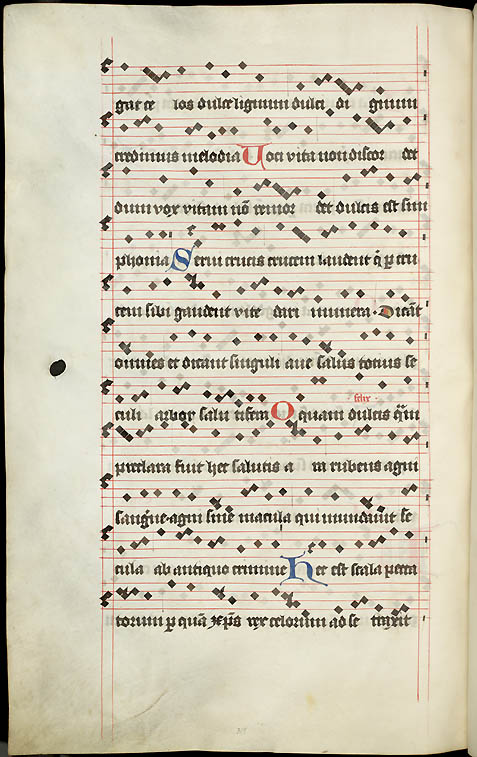 gne ce los dulce lignum dulci di gnum
credimus melodia Uoci vita non discor det
dum vox vitam nō remor det dulcis est sim
phonia Serui crucis crucem laudent q̄ p cru
cem sibi gaudent vite dari munera · Dicāt
omnes et dicant singuli aue salus totius se
felix ·
culi arbor salu tifera O quam dulcis q̄m
preclara fuit hec salutis a ra rubens agni
sanguīe agni sine macula qui mundauit se
cula ab antiquo crimine Hec est scala pecca
torum p quā xp̄s rex celorum ad se traxit